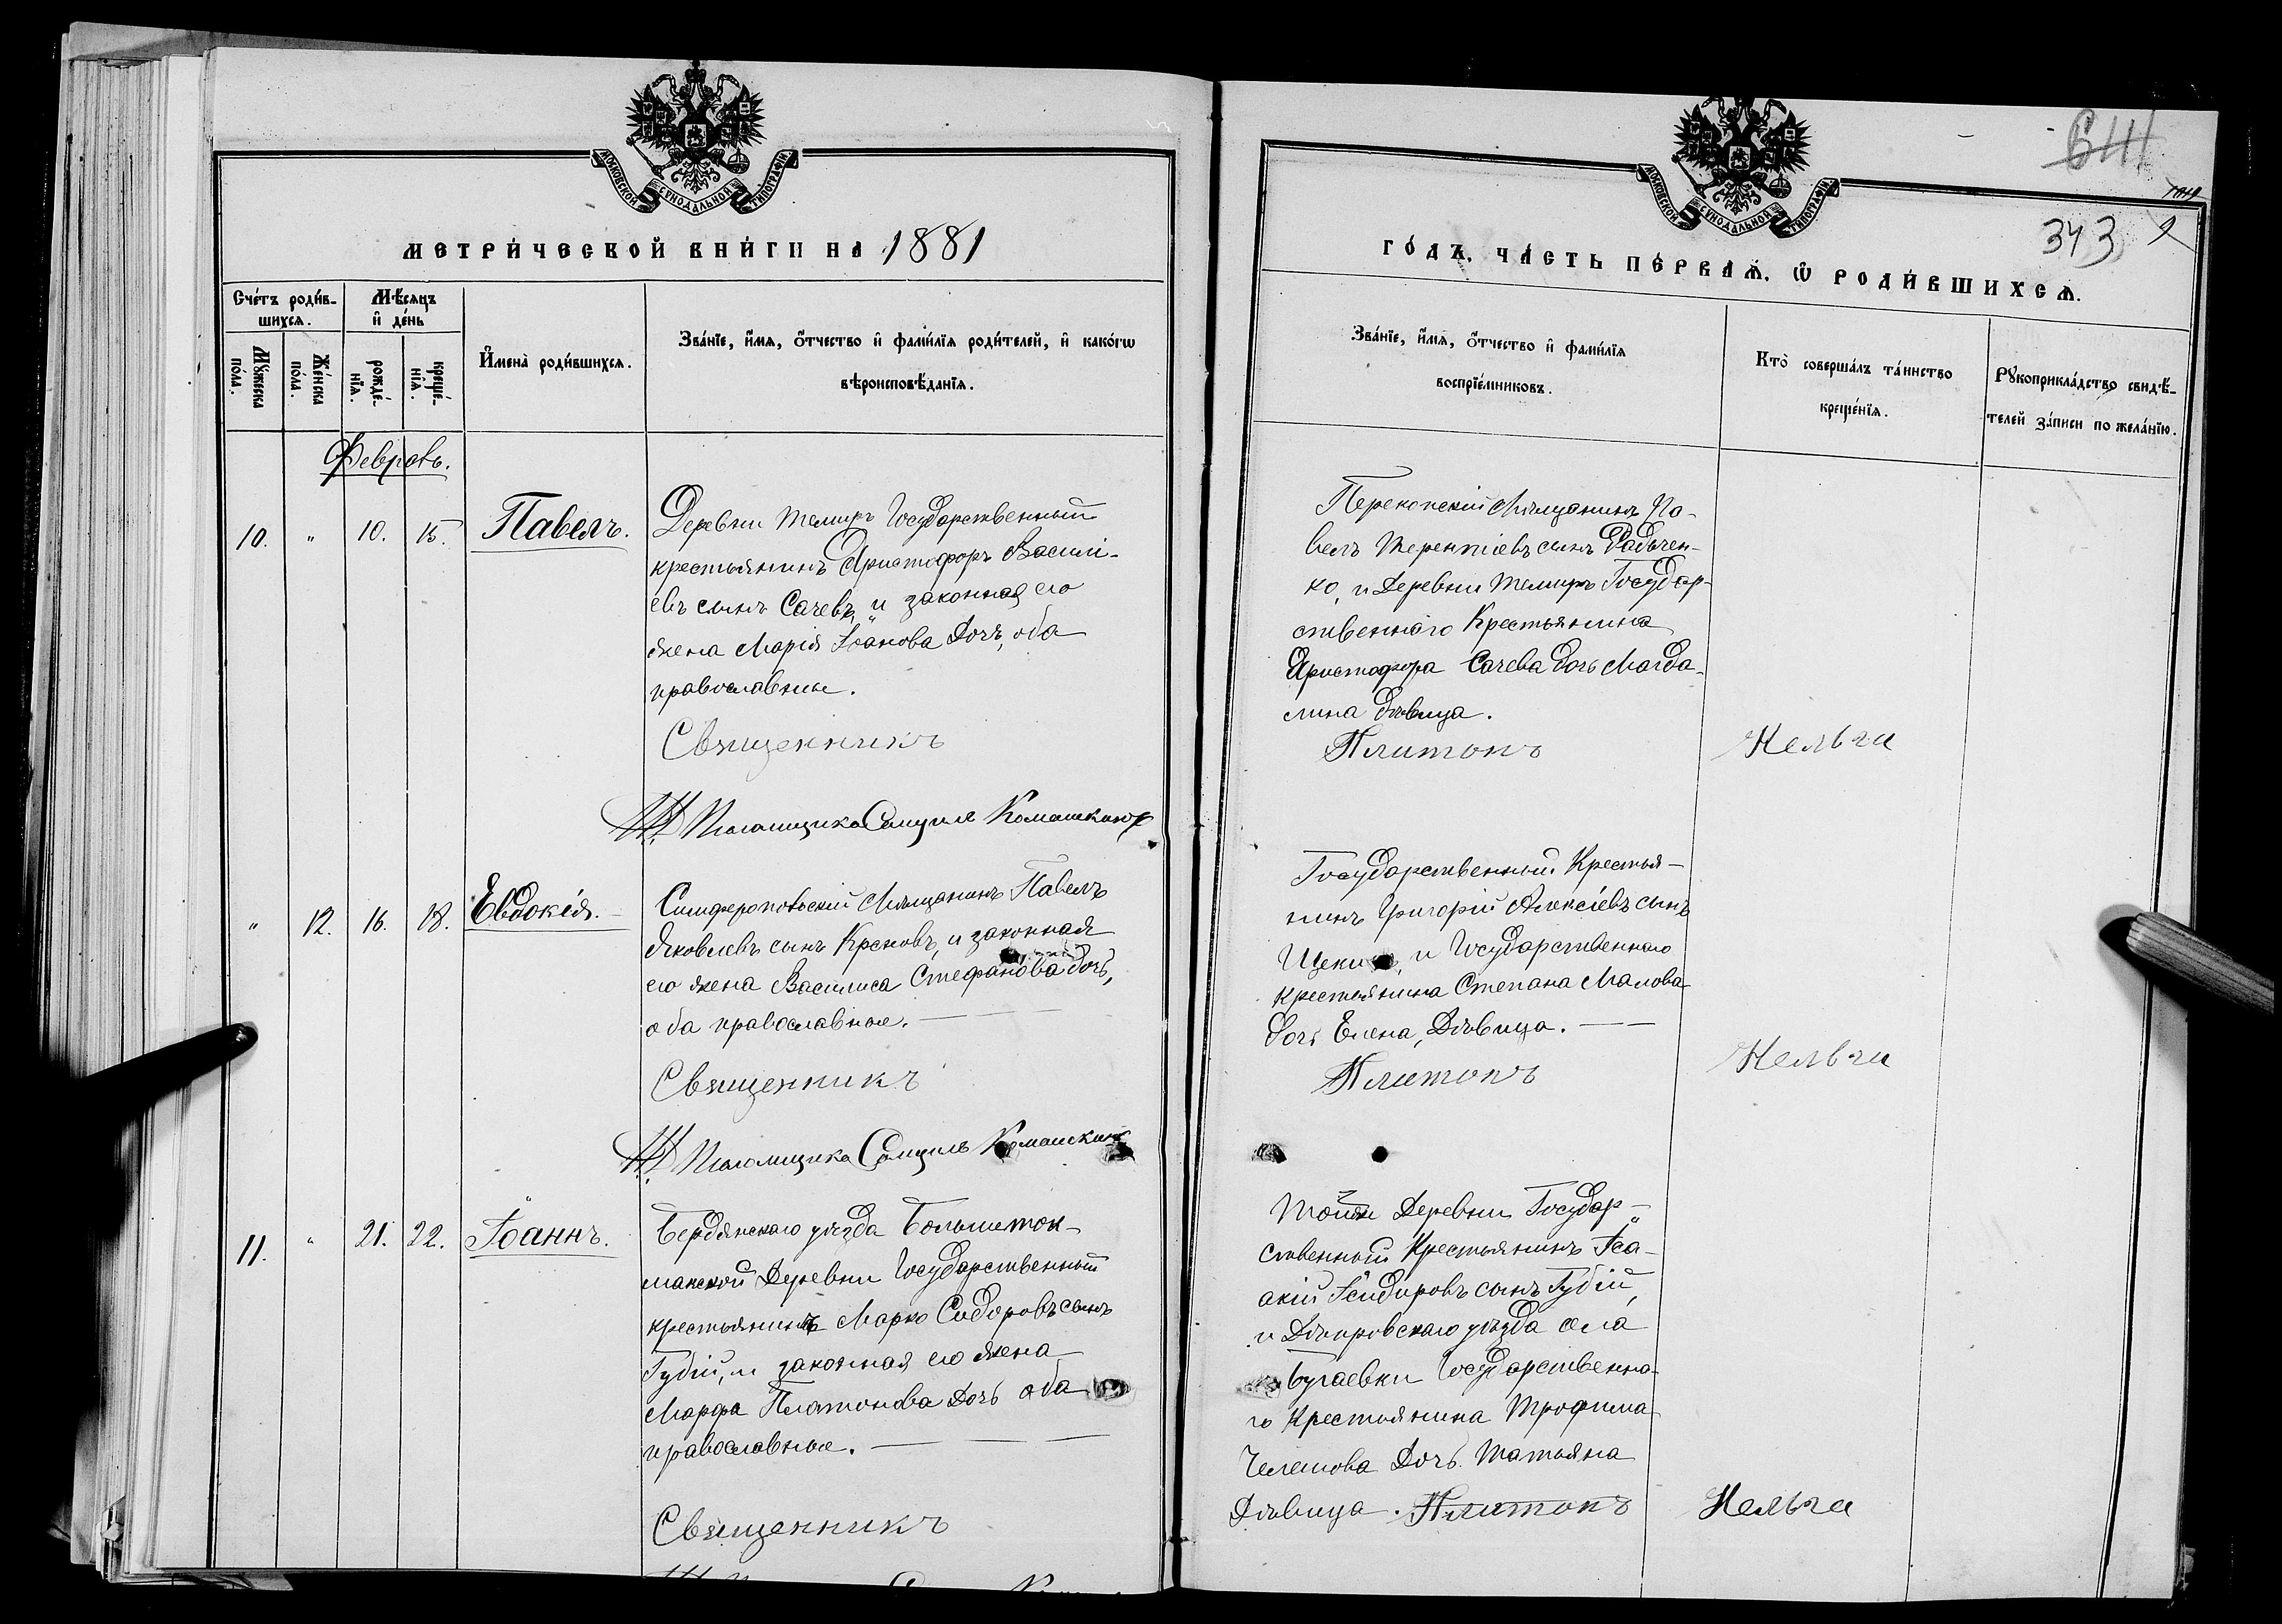 МОСКОВСКОЙ СѴНОДАЛЬНОЙ ТИПОГРАФІИ.
МЕТРИ́ЧЕСКОЙ КНИ́ГИ НА 1881
Сче́тъ роди́в-
шихсѧ.
Мѣ́сѧцъ
и҆ де́нь
Мꙋ́жеска
по́ла.
Же́нска
по́ла.
рожде́-
нїѧ.
креще́-
нїѧ.
И҆мена̀ роди́вшихсѧ.
Зва́нїе, и҆́мѧ, ѻ҆́тчество и҆ фами́лїѧ роди́телей, и҆ како́гѡ
вѣроисповѣ́данїѧ.
Февраль.
10. " 10. 15. Павелъ.
Деревни Темиръ Государственный
крестьянинъ Аристофоръ Василі-
евъ сынъ Сачевъ, и законная его
жена Марія Іоанова дочь, оба
православные.
Священникъ
И. Псаломщика Самуилъ
" 12. 16. 18. Евдокія.
Симферопольскій Мѣщанинъ Павелъ
Яковлевъ сынъ и законная
его жена Василиса Стефанова дочь,
оба православные.
Священникъ
И. Псаломщика Самуилъ
11. " 21. 22. Іоаннъ.
Бердянскаго уѣзда Большеток-
макской Деревни Государственный
крестьянинъ Марко Сидоровъ сынъ
Губій, и законная его жена
Марфа Платонова дочь оба
православные.
Священникъ
641
343
МОСКОВСКОЙ СѴНОДАЛЬНОЙ ТИПОГРАФІИ.
ГО́ДЪ. ЧА́СТЬ ПЕ́РВАѦ. Ѽ РОДИ́ВШИХСѦ.
Зва́нїе, и҆́мѧ, ѻ҆́тчество и҆ фами́лїѧ
воспрїе́мниковъ.
Кто̀ соверша́лъ та́инство
креще́нїѧ.
Рꙋкоприкла́дство свидѣ́-
телей за́писи по жела́нїю.
Перекопскій Мѣщанинъ Па-
велъ Терентіевъ сынъ Рабочен-
ко, и Деревни Темиръ Государ-
ственнаго Крестьянина
Аристофора Сачева дочь Магда-
лина дѣвица.
Платонъ Кельчи
Государственный Крестья-
нинъ Григорій Алексіевъ сынъ
и Государственнаго
крестьянина Степана Малова
дочь Елена, Дѣвица.
Платонъ Кельчи
Тойже Деревни Государ-
ственный Крестьянинъ Іса-
акій Ісидоровъ сынъ Губій,
и Днѣпровскаго уѣзда села
Бугаевки Государственна-
го Крестьянина Трофима
Челешова Дочь Татьяна
Дѣвица. Платонъ Кельчи